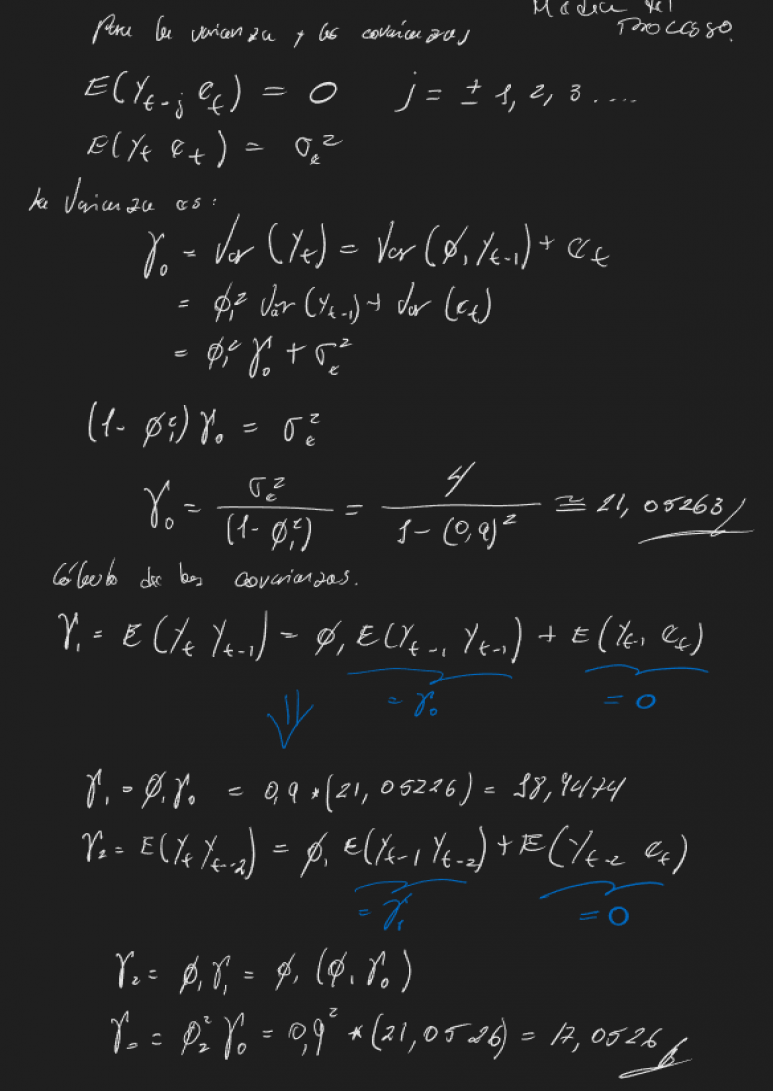 Media del
Proceso.
Para la varianza y las covarianzas
E(Y_{t-j} e_t) = 0   j = ± 1, 2, 3 ....
E(Y_t e_t) = σ_e^2
La Varianza es:
γ_0 = Var (Y_t) = Var (φ_1 Y_{t-1}) + e_t
= φ_1^2 Var (Y_{t-1}) + Var (e_t)
= φ_1^2 γ_0 + σ_e^2
(1 - φ_1^2) γ_0 = σ_e^2
γ_0 = σ_e^2 / (1 - φ_1^2) = 4 / 1 - (0,9)^2 ≅ 21,05263
Cálculo de las covarianzas.
γ_1 = E (Y_t Y_{t-1}) = φ_1 E(Y_{t-1} Y_{t-1}) + E(Y_{t-1} e_t)
= γ_0   = 0
⇓
γ_1 = φ_1 γ_0 = 0,9 * (21,05226) = 18,9474
γ_2 = E(Y_t Y_{t-2}) = φ_1 E(Y_{t-1} Y_{t-2}) + E(Y_{t-2} e_t)
= γ_1   = 0
γ_2 = φ_1 γ_1 = φ_1 (φ_1 γ_0)
γ_2 = φ_2^2 γ_0 = 0,9^2 * (21,0526) = 17,0526